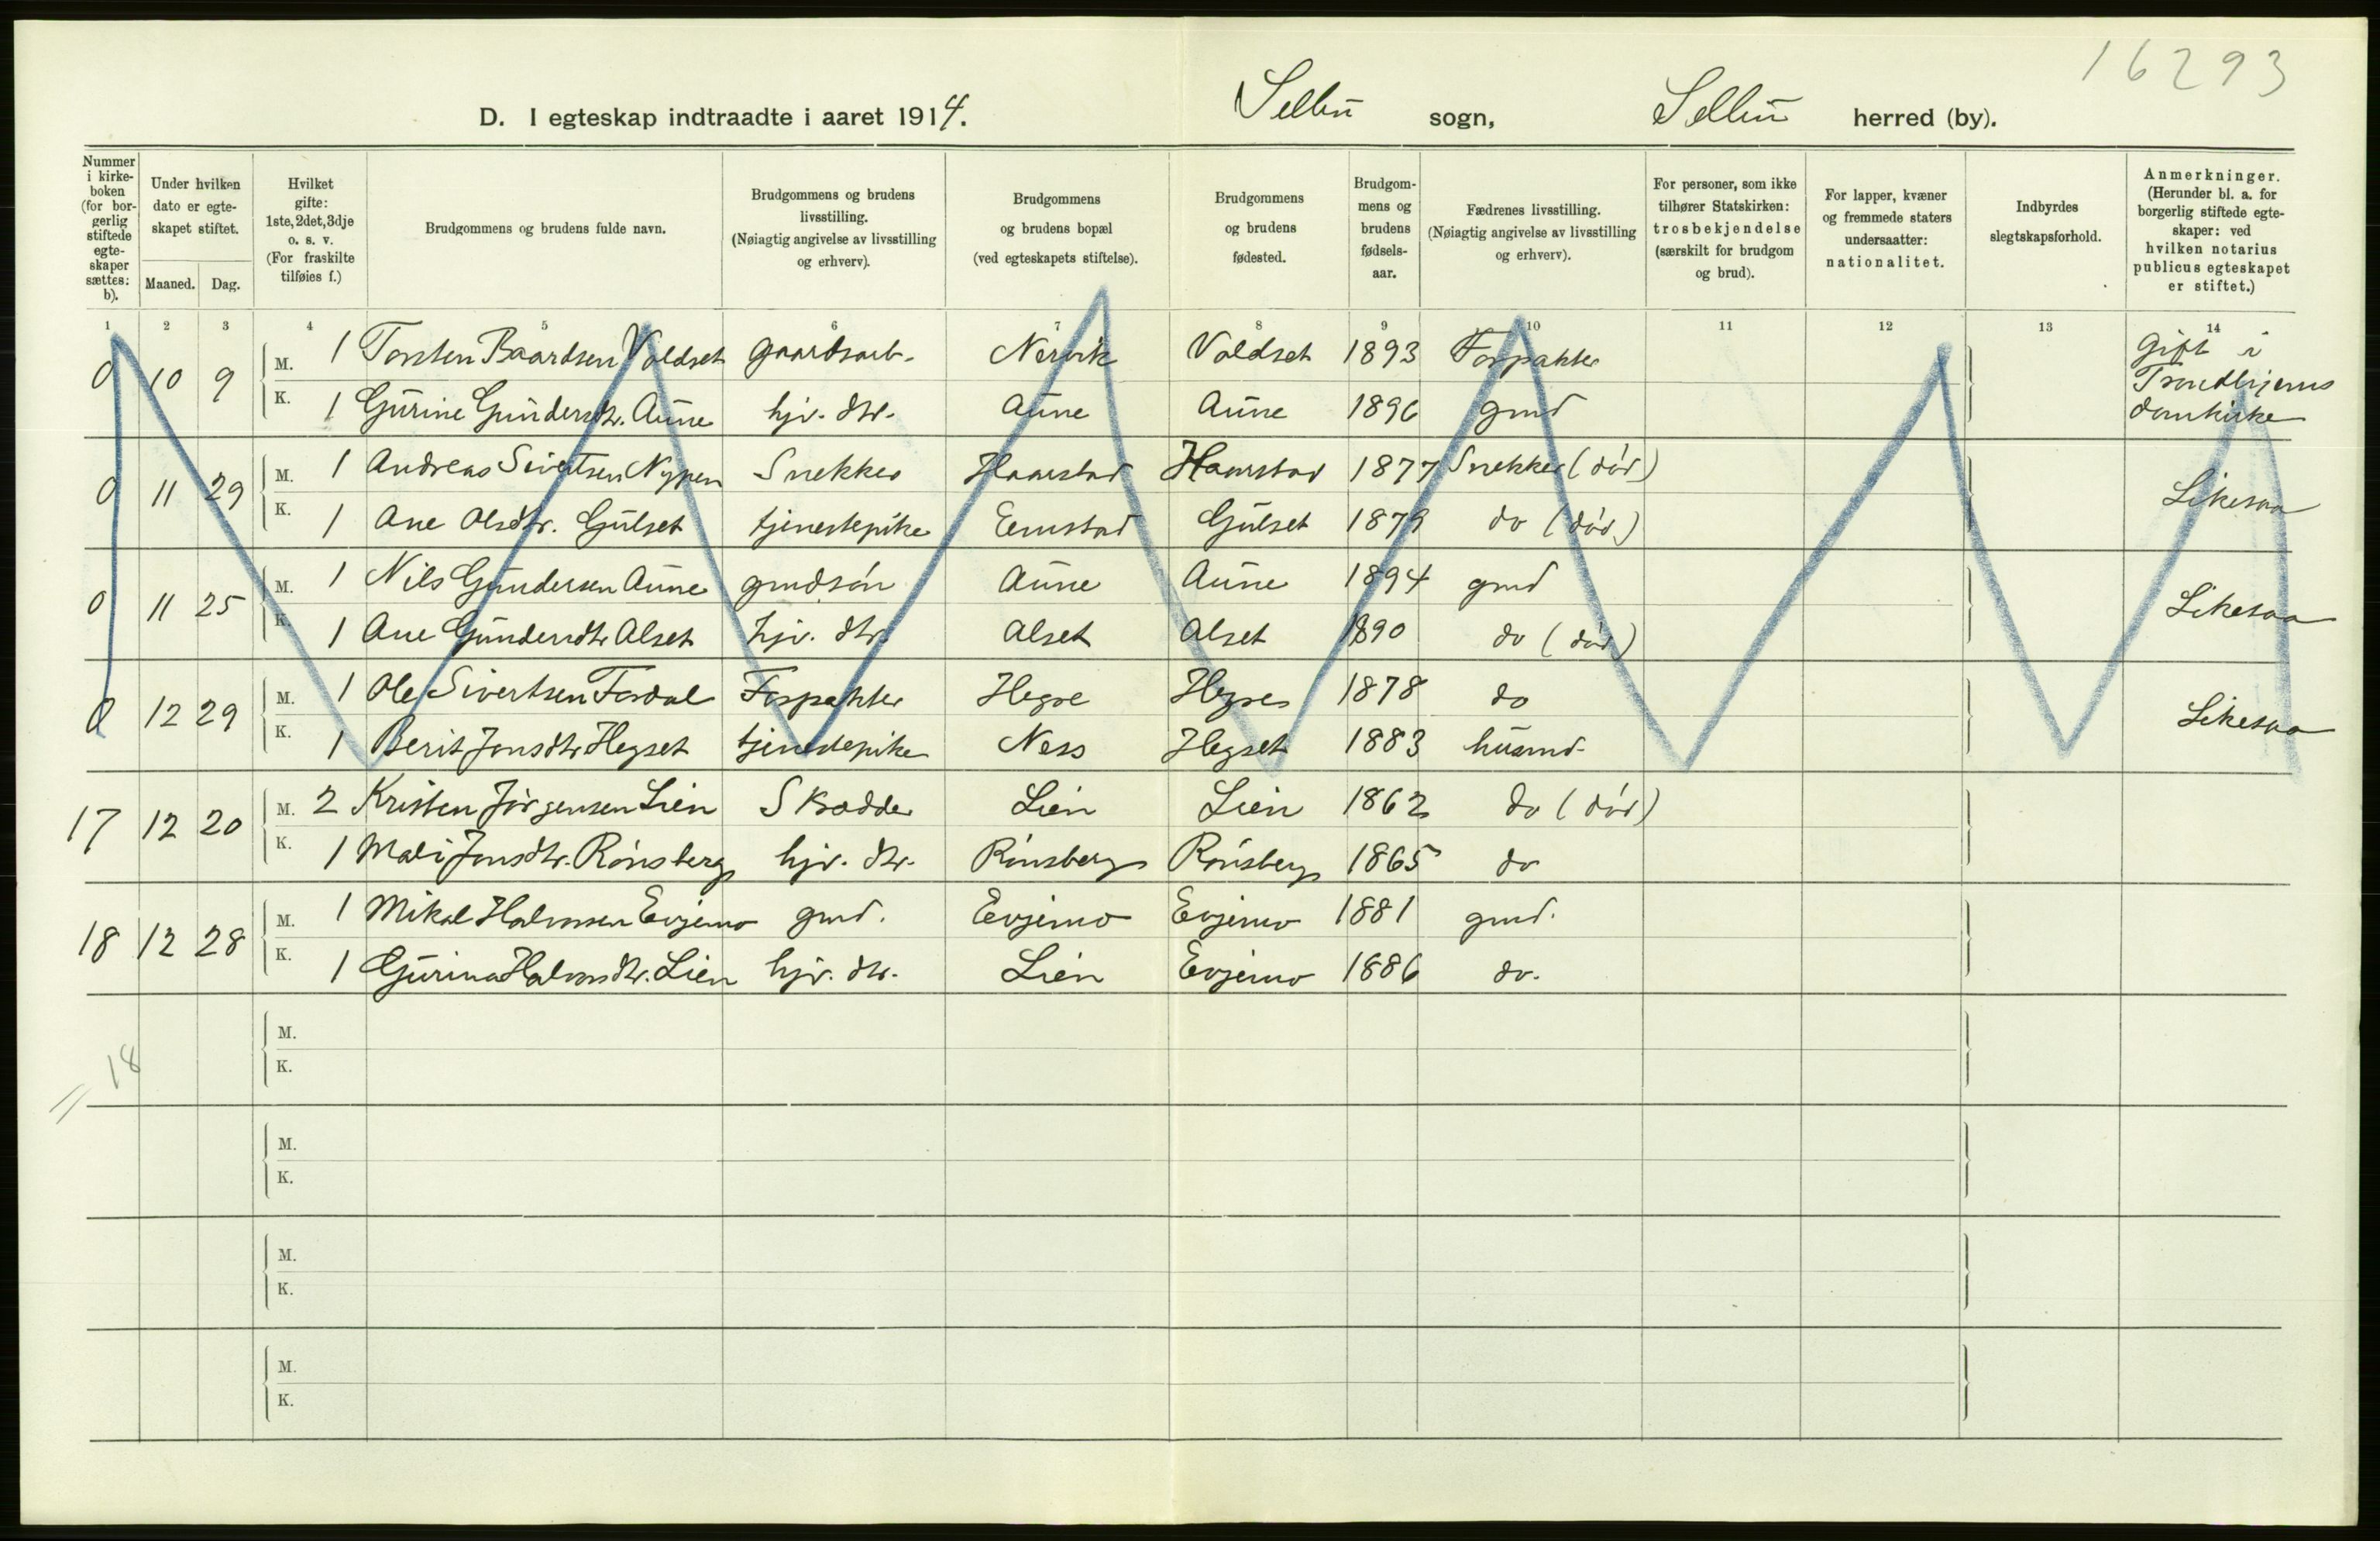 16293
D. I egteskap indtraadte i aaret 1914. Selbu sogn, Selbu herred (by).
Nummer i kirke-boken (for bor-gerlig stiftede egte-skaper sættes: b).
Under hvilken dato er egte-skapet stiftet.
Maaned. Dag.
Hvilket gifte: 1ste, 2det, 3dje o. s. v. (For fraskilte tilføies f.)
Brudgommens og brudens fulde navn.
Brudgommens og brudens livsstilling. (Nøiagtig angivelse av livsstilling og erhverv).
Brudgommens og brudens bopæl (ved egteskapets stiftelse).
Brudgommens og brudens fødested.
Brudgom-mens og brudens fødsels-aar.
Fædrenes livsstilling. (Nøiagtig angivelse av livsstilling og erhverv).
For personer, som ikke tilhører Statskirken: trosbekjendelse (særskilt for brudgom og brud).
For lapper, kvæner og fremmede staters undersaatter: nationalitet.
Indbyrdes slegtskapsforhold.
Anmerkninger. (Herunder bl. a. for borgerlig stiftede egte-skaper: ved hvilken notarius publicus egteskapet er stiftet.)
1 2 3 4 5 6 7 8 9 10 11 12 13 14
0 10 9 M. 1 Torsten Baardsen Voldset gaardsarb. Nervik Voldset 1893 Forpakter gift i Trondhjems domkirke
K. 1 Gurine Gundersdtr. Aune hjv. dtr. Aune Aune 1896 gmd
0 11 29 M. 1 Andreas Sivertsen Nypen Snekker Haarstad Haarstad 1877 Snekker (død) Likesaa
K. 1 Ane Olsdtr. Gulset tjenestepike Emstad Gulset 1879 do (død)
0 11 25 M. 1 Nils Gundersen Aune gmdsøn Aune Aune 1894 gmd Likesaa
K. 1 Ane Gundersdtr Alset hjv. dtr. Alset Alset 1890 do (død)
0 12 29 M. 1 Ole Sivertsen Fordal Forpakter Hegre Hegre 1878 do Likesaa
K. 1 Berit Jonsdtr Hegset tjenestepike Ness Hegset 1883 husmd.
17 12 20 M. 2 Kristen Jørgensen Lien Skrædder Lien Lien 1862 do (død)
K. 1 Mali Jonsdtr. Rønsberg hjv. dtr. Rønsberg Rønsberg 1865 do
18 12 28 M. 1 Mikal Halvorsen Evjemo gmd. Evjemo Evjemo 1881 gmd.
K. 1 Gurina Halvorsdtr. Lien hjv. dtr. Lien Evjemo 1886 do.
M.
18
K.
M.
K.
M.
K.
M.
K.